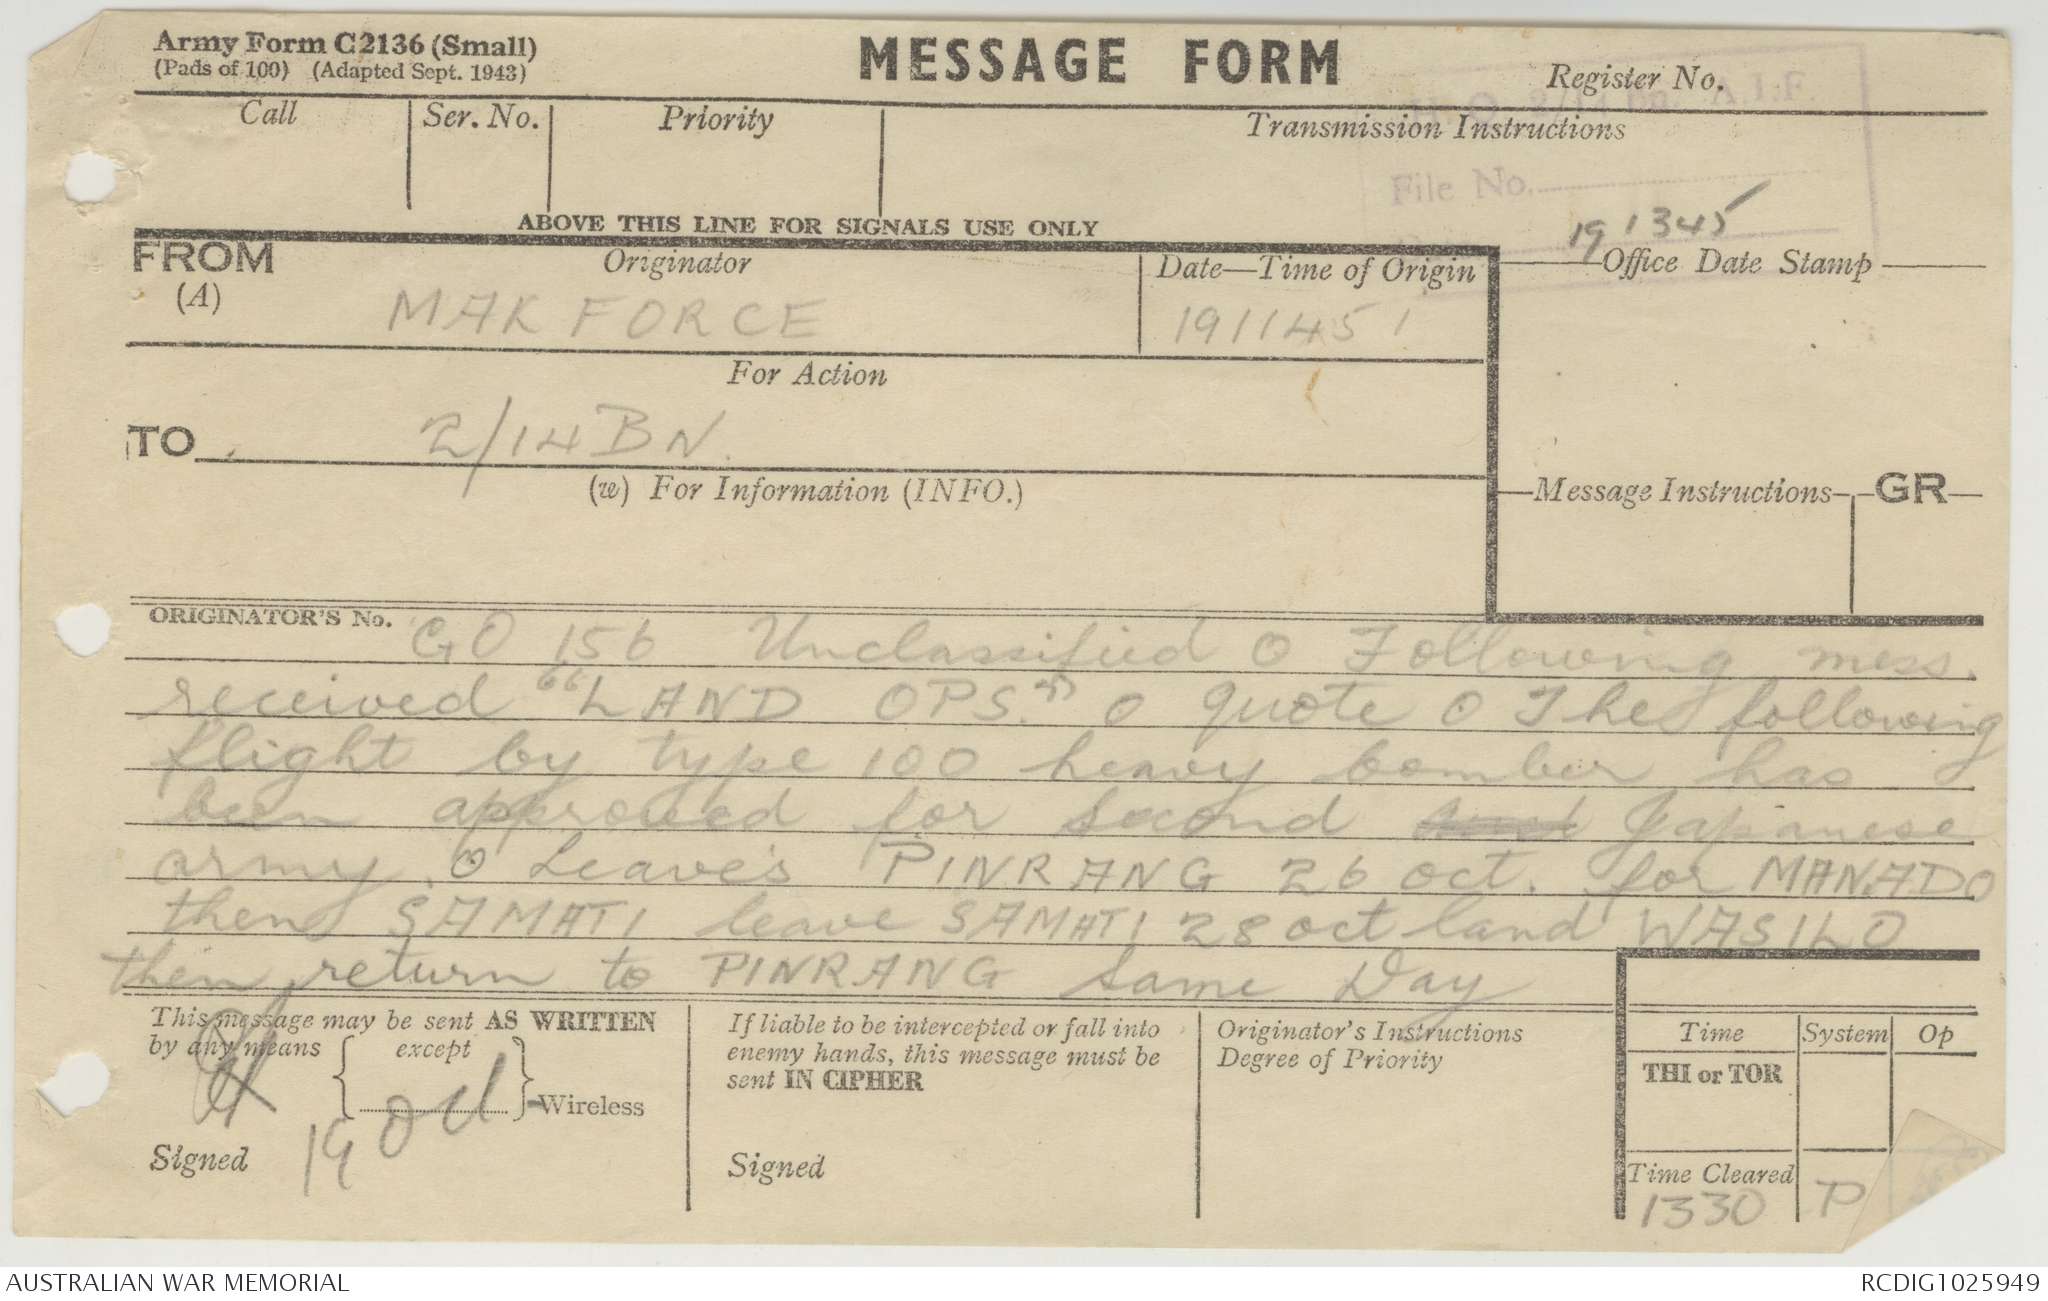 Army Form C2136 (Small)
(Pads of 100) (Adapted Sept. 1943)
MESSAGE FORM
Register No.
A.I.F.
Call
Ser. No.
Priority
Transmission Instructions
File No.
ABOVE THIS LINE FOR SIGNALS USE ONLY
19 1345
Office Date Stamp
FROM
(A)
Originator
Date—Time of Origin
MAK FORCE
191145 I
For Action
TO
2/14 BN.
(w) For Information (INFO.)
Message Instructions
GR
ORIGINATOR'S No.
GO 156 Unclassified O Following mess.
received "LAND OPS." O Quote O The following
flight by type 100 heavy bomber has
been approved for second Japanese
army. O Leaves PINRANG 26 oct. for MANADO
then SAMATI leave SAMATI 28 oct land WASILO
then return to PINRANG same Day
This message may be sent AS WRITTEN
by any means except
Wireless
19 Oct
Signed
If liable to be intercepted or fall into
enemy hands, this message must be
sent IN CIPHER
Signed
Originator's Instructions
Degree of Priority
Time
System
Op
THI or TOR
Time Cleared
1330
P
AUSTRALIAN WAR MEMORIAL
RCDIG1025949